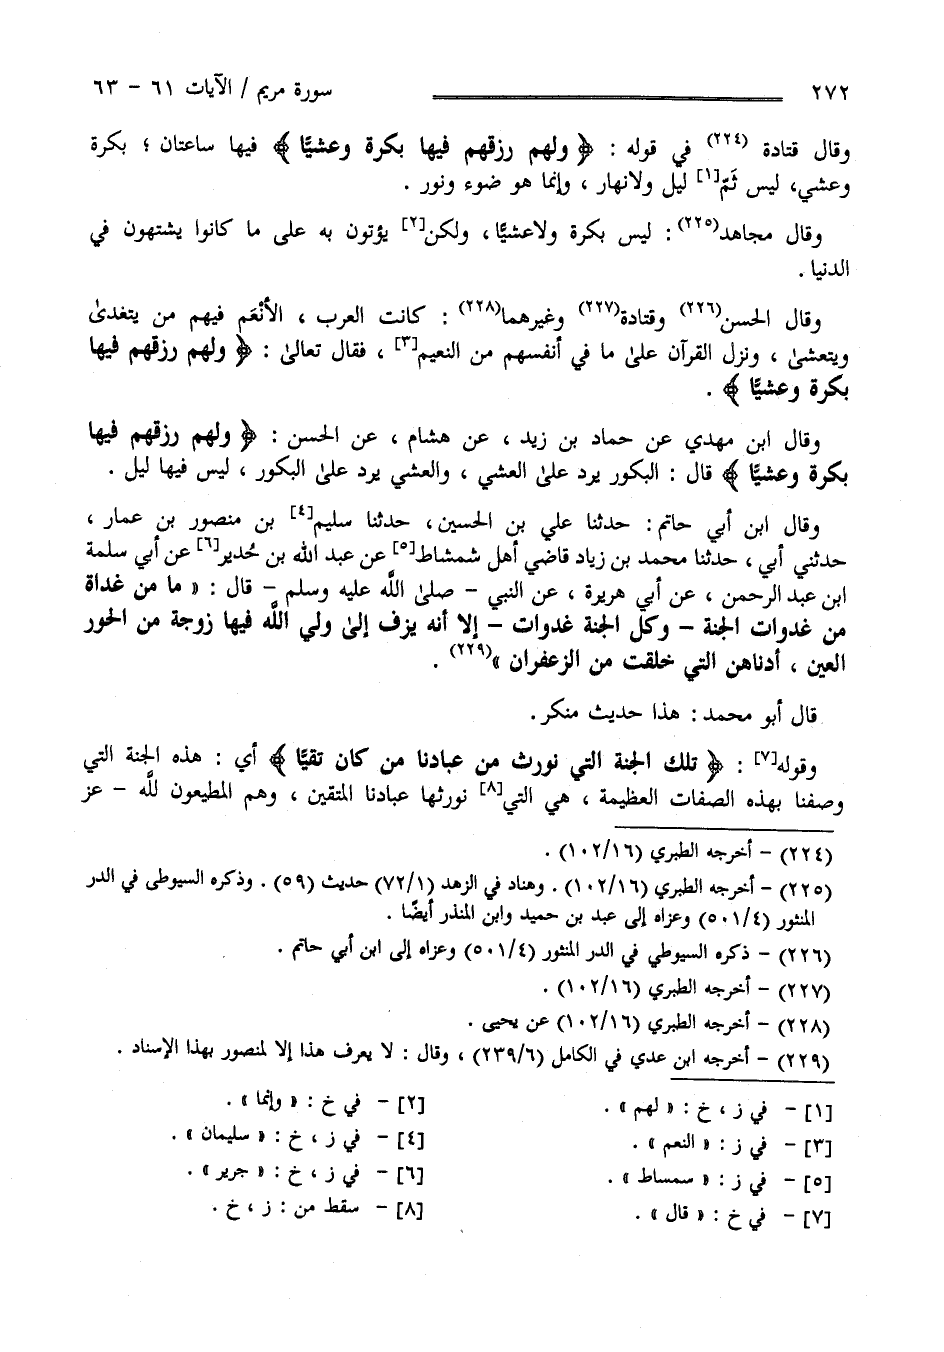 ٢٧٢ سورة مريم / الآيات ٦١ - ٦٣
وقال قتادة (٢٢٤) في قوله : ﴿ ولهم رزقهم فيها بكرة وعشيًّا ﴾ فيها ساعتان ؛ بكرة
وعشي، ليس ثَمّ[١] ليل ولانهار ، وإنما هو ضوء ونور .
وقال مجاهد(٢٢٥) : ليس بكرة ولاعشيًّا ، ولكن[٢] يؤتون به على ما كانوا يشتهون في
الدنيا .
وقال الحسن(٢٢٦) وقتادة(٢٢٧) وغيرهما(٢٢٨) : كانت العرب ، الأنْعَم فيهم من يتغدىٰ
ويتعشىٰ ، ونزل القرآن علىٰ ما في أنفسهم من النعيم[٣] ، فقال تعالىٰ : ﴿ ولهم رزقهم فيها
بكرة وعشيًّا ﴾ .
وقال ابن مهدي عن حماد بن زيد ، عن هشام ، عن الحسن : ﴿ ولهم رزقهم فيها
بكرة وعشيًّا ﴾ قال : البكور يرد علىٰ العشي ، والعشي يرد علىٰ البكور ، ليس فيها ليل .
وقال ابن أبي حاتم : حدثنا علي بن الحسين، حدثنا سليم[٤] بن منصور بن عمار ،
حدثني أبي ، حدثنا محمد بن زياد قاضي أهل شمشاط[٥] عن عبد الله بن حُدير[٦] عن أبي سلمة
ابن عبد الرحمن ، عن أبي هريرة ، عن النبي - صلىٰ اللَّه عليه وسلم - قال : « ما من غداة
من غدوات الجنة - وكل الجنة غدوات - إلا أنه يزف إلىٰ ولي اللَّه فيها زوجة من الحور
العين ، أدناهن التي خلقت من الزعفران »(٢٢٩) .
قال أبو محمد : هذا حديث منكر .
وقوله[٧] : ﴿ تلك الجنة التي نورث من عبادنا من كان تقيًّا ﴾ أي : هذه الجنة التي
وصفنا بهذه الصفات العظيمة ، هي التي[٨] نورثها عبادنا المتقين ، وهم المطيعون للَّه - عز
(٢٢٤) - أخرجه الطبري (١٠٢/١٦) .
(٢٢٥) - أخرجه الطبري (١٠٢/١٦) . وهناد في الزهد (٧٢/١) حديث (٥٩) . وذكره السيوطى في الدر
المنثور (٥٠١/٤) وعزاه إلى عبد بن حميد وابن المنذر أيضًا .
(٢٢٦) - ذكره السيوطي في الدر المنثور (٥٠١/٤) وعزاه إلى ابن أبي حاتم .
(٢٢٧) - أخرجه الطبري (١٠٢/١٦) .
(٢٢٨) - أخرجه الطبري (١٠٢/١٦) عن يحيى .
(٢٢٩) - أخرجه ابن عدي في الكامل (٢٣٩/٦) ، وقال : لا يعرف هذا إلا لمنصور بهذا الإسناد .
[١] - في ز ، خ : « لهم » . [٢] - في خ : « وإنما » .
[٣] - في ز : « النعم » . [٤] - في ز ، خ : « سليمان » .
[٥] - في ز : « سمساط » . [٦] - في ز ، خ : « جرير » .
[٧] - في خ : « قال » . [٨] - سقط من : ز ، خ .